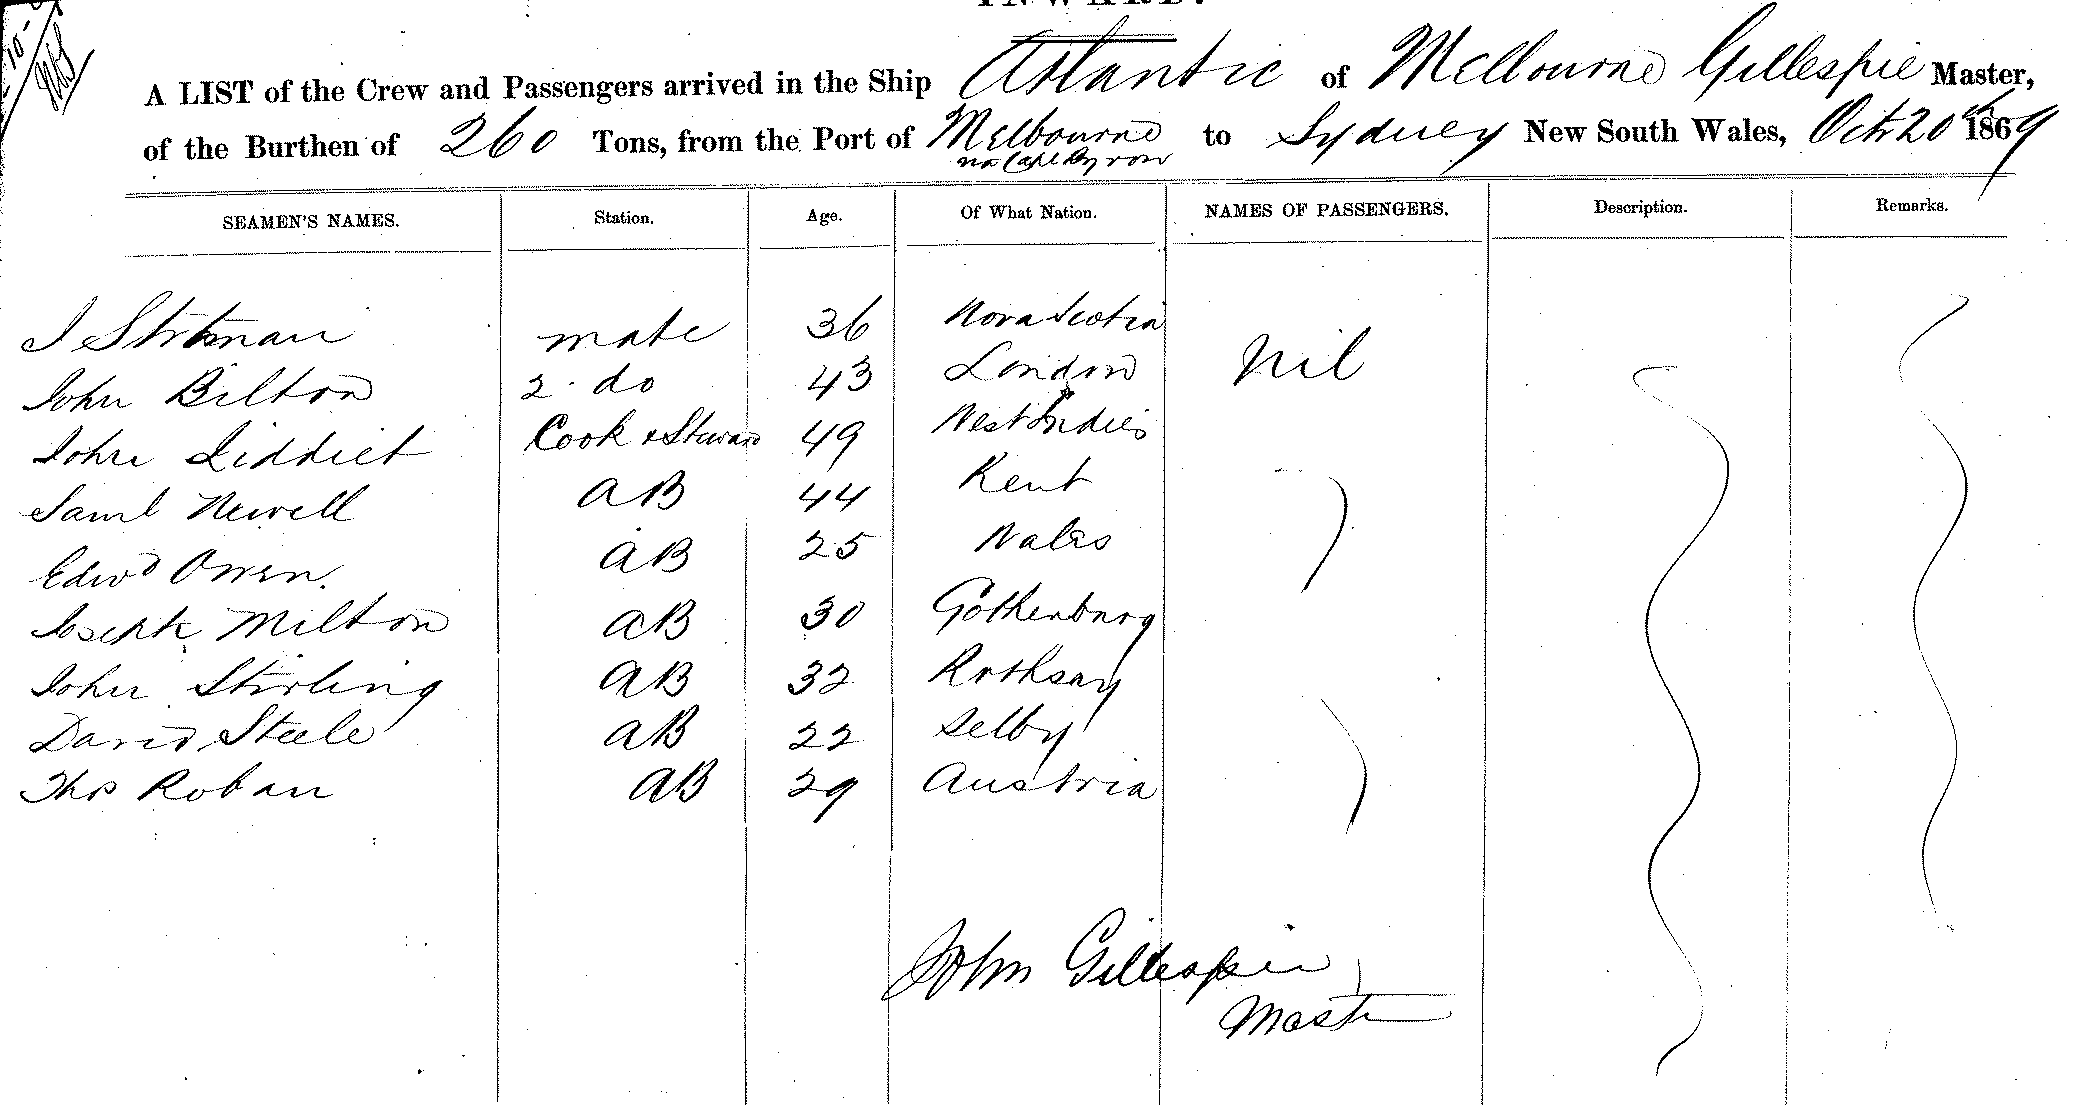 INWARD.
A LIST of the Crew and Passengers arrived in the Ship Atlantic of Melbourne Gillespie Master,
of the Burthen of 260 Tons, from the Port of Melbourne to Sydney New South Wales, Octr 20th 1869
via Cape Byron
SEAMEN'S NAMES. Station. Age. Of What Nation. NAMES OF PASSENGERS. Description. Remarks.
mate 36 Nova Scotia
Nil
John Bilton 2 do 43 London
John Liddict Cook & Steward 49 West Indies
Saml Newell AB 44 Kent
Edwd Owen. AB 25 Wales
Joseph Milton AB 30 Gothenburg
John Stirling AB 32 Rothsay
David Steele AB 22 Selby
Thos Roban AB 29 Austria
John Gillespie
Master